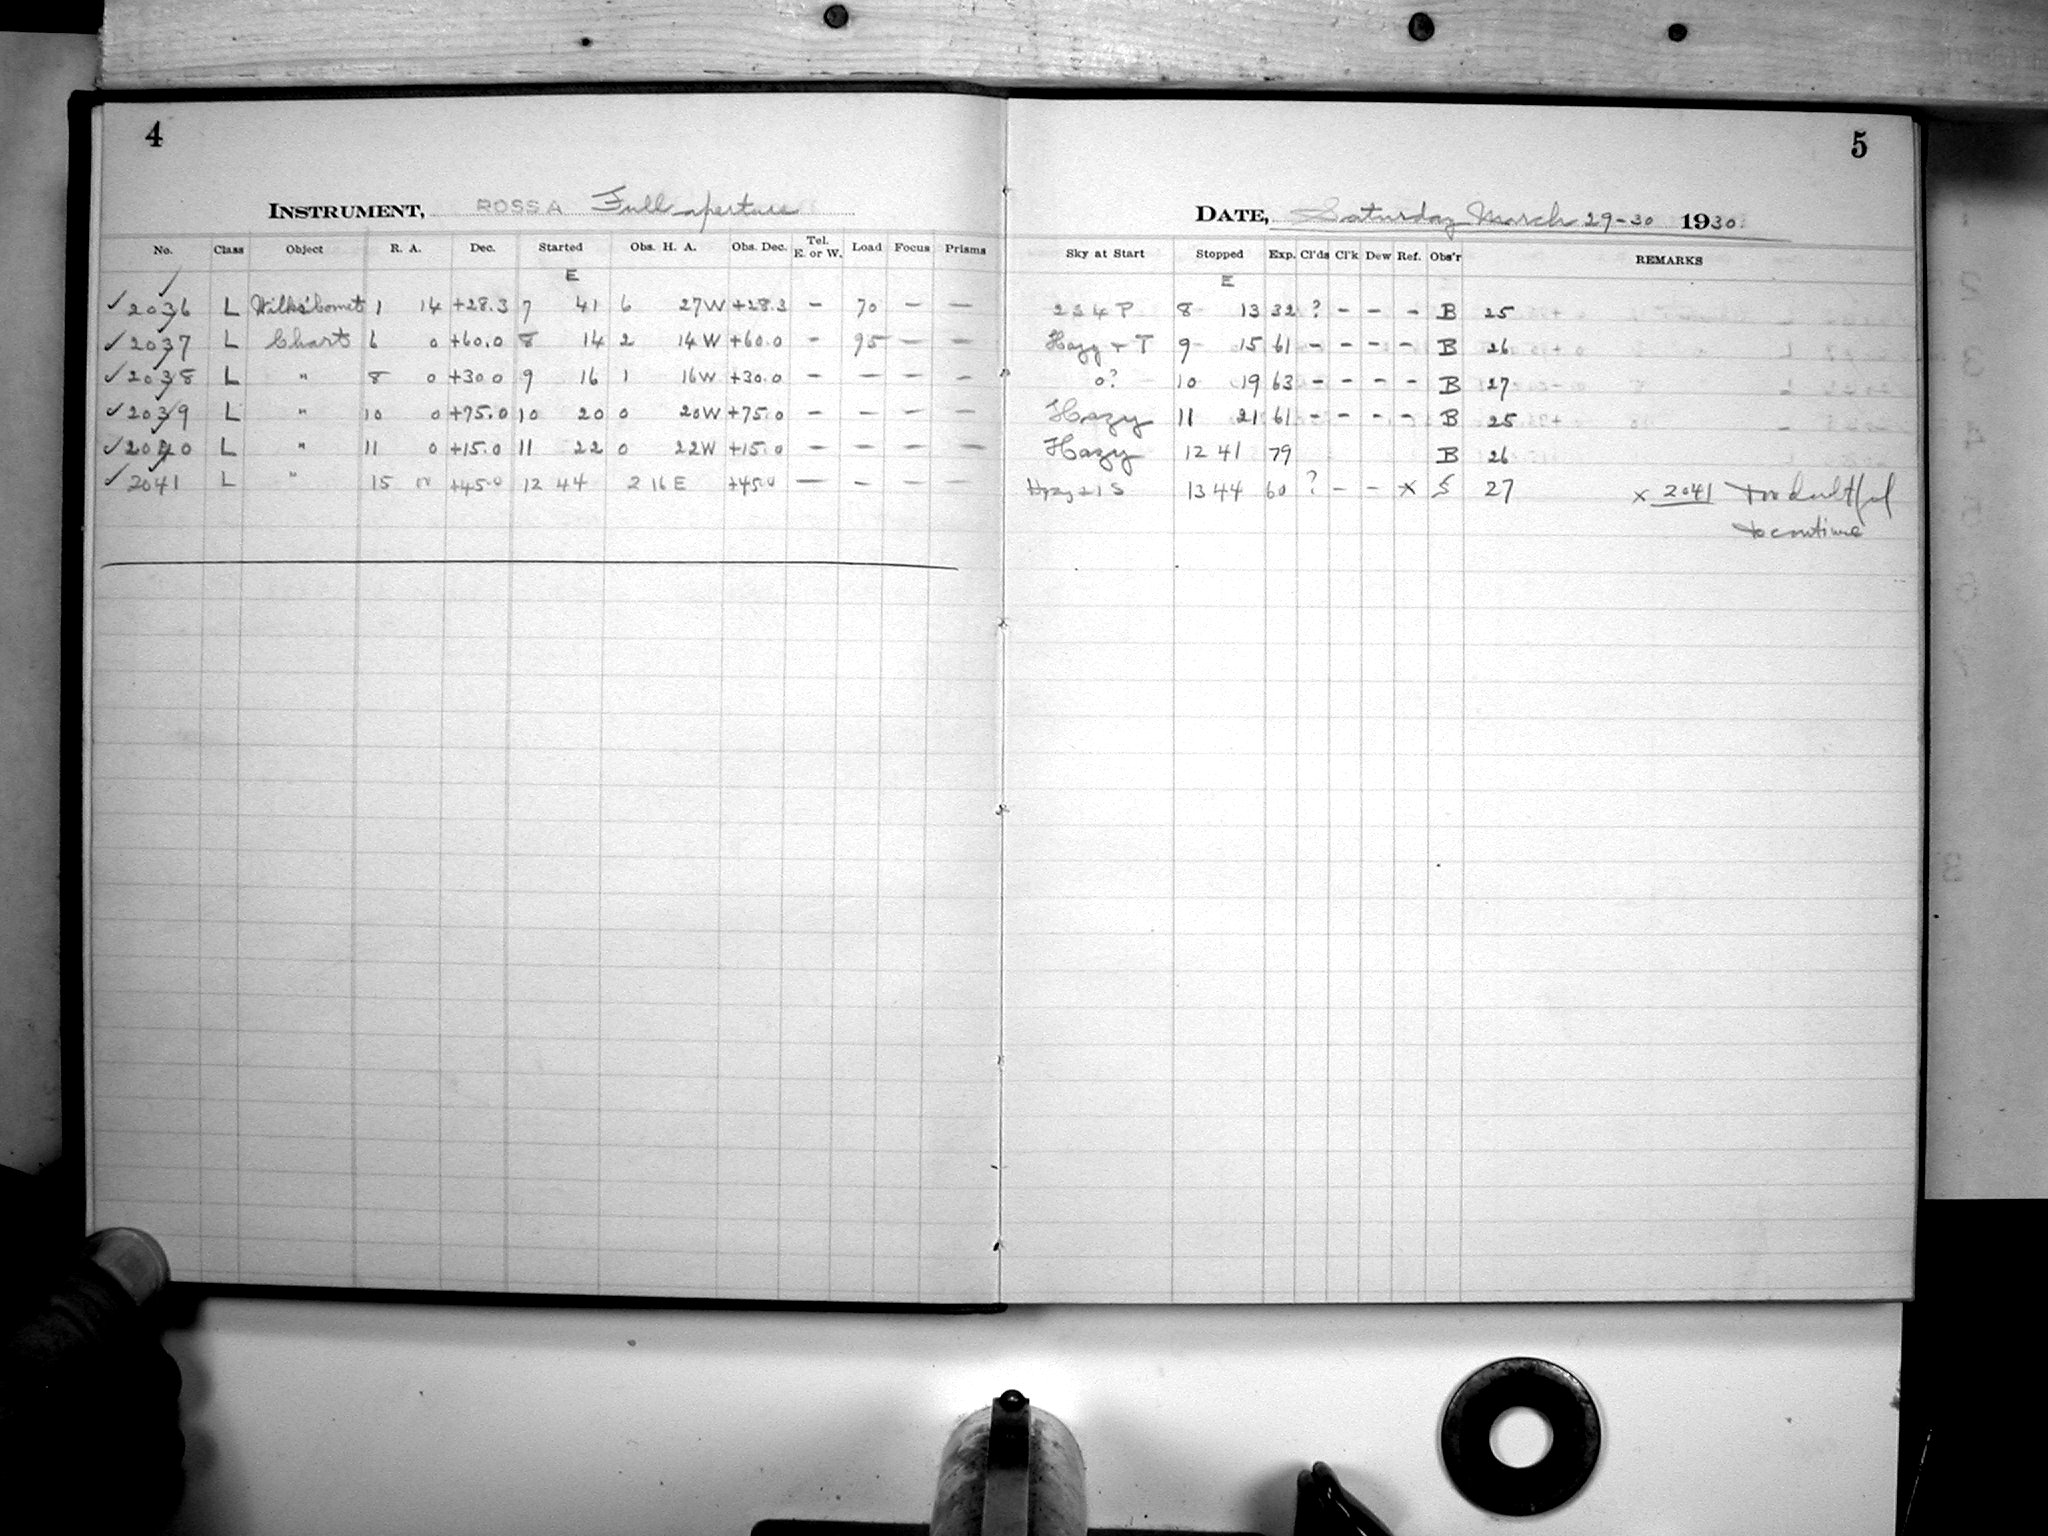 4
INSTRUMENT, ROSSA Full aperture
No. Class Object R. A. Dec. Started Obs. H. A. Obs. Dec. Tel. E. or W. Load Focus Prisms
E
✓ 2036 L Wilks' Comet 1 14 +28.3 7 41 6 27W +28.3 – 70 – –
✓ 2037 L Chart 6 0 +60.0 8 14 2 14W +60.0 – 95 – –
✓ 2038 L " 8 0 +30.0 9 16 1 16W +30.0 – – – –
✓ 2039 L " 10 0 +75.0 10 20 0 20W +75.0 – – – –
✓ 2040 L " 11 0 +15.0 11 22 0 22W +15.0 – – – –
✓ 2041 L " 15 +45.0 12 44 2 16 E +45.0 – – – –
5
DATE, Saturday March 29-30 1930
Sky at Start Stopped Exp. Cl'ds Cl'k Dew Ref. Obs'r REMARKS
E
P 8 13 32 ? – – – B 25
Hazy + T 9 15 61 – – – – B 26
0? 10 19 63 – – – – B 27
Hazy 11 21 61 – – – – B 25
Hazy 12 41 79 B 26
Hazy 1 S 13 44 60 ? – – × S 27 × 2041 Too doubtful
to continue